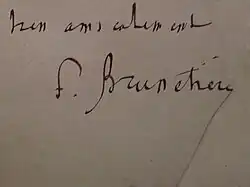 bien amicalement
F. Brunetière